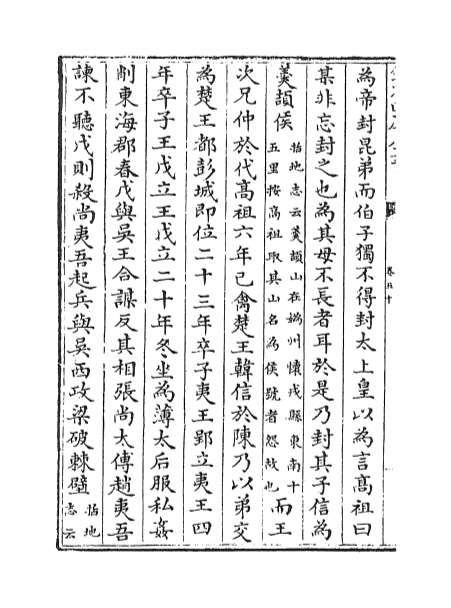 為帝封昆弟而伯子獨不得封太上皇以為言髙祖曰
某非忘封之也為其母不長者耳於是乃封其子信為
羮頡侯括地志云羮頡山在媯州懐戎縣東南十五里按髙祖取其山名為侯號者怨故也而王
次兄仲於代髙祖六年已禽楚王韓信於陳乃以弟交
為楚王都彭城即位二十三年卒子夷王郢立夷王四
年卒子王戊立王戊立二十年冬坐為薄太后服私姦
削東海郡春戊與呉王合謀反其相張尚太傅趙夷吾
諫不聽戊則殺尚夷吾起兵與呉西攻梁破棘壁括地志云
卷五十